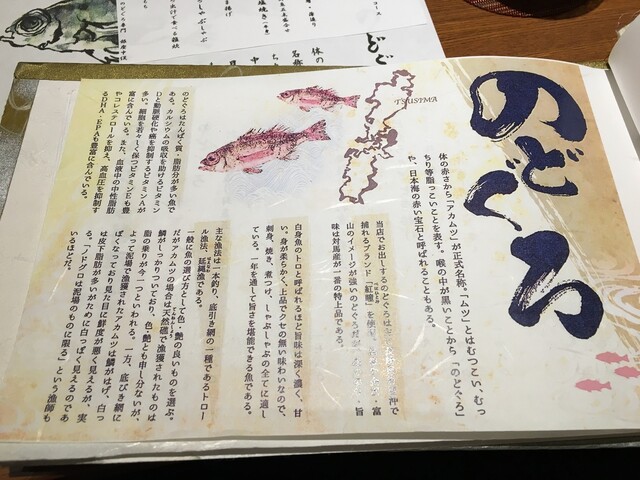 のどぐろ
TSUSIMA
体の赤さから「アカムツ」が正式名称。「ムツ」とはむつこい、むっ
ちり等脂っこいことを表す。喉の中が黒いことから「のどぐろ」
や、日本海の赤い宝石と呼ばれることもある。
当店でお出しするのどぐろは
沖で
捕れるブランド「紅瞳」を使
・富
山のイメージが強いのどぐろだが、
、旨
味は対馬産が一番の特上品である。
白身魚のトロと呼ばれるほど旨味は深く濃く、甘
い。身が柔らかく、上品でクセの無い味わいなので、
刺身、焼き、煮つけ、しゃぶしゃぶの全てに適し
ている。一年を通して旨さを堪能できる魚である。
主な漁法は一本釣り、底引き網の一種であるトロー
ル漁法、延縄漁である。
一般に魚の選び方として色・艶の良いものを選ぶ。
だがアカムツの場合は天然礁で漁獲されたものは
鱗がしっかりついており、色・艶とも申し分ないが、
脂の乗りが今一つといわれる。一方、底びき網に
よって泥場で漁獲されたアカムツは鱗がはげ、白っ
ぽくなっており見た目に鮮度が悪く見えるが、実
は皮下脂肪が多いがために白っぽく見えるのであ
る。「ノドグロは泥場のものに限る」という漁師も
いるほどだ。
のどぐろはたんぱく質・脂肪分が多い魚で
ある。カルシウムの吸収を助けるビタミン
Dと動脈硬化や癌を抑制するビタミンAが
多い。細胞を若々しく保つビタミンEも豊
富に含んでいる。また、血液中の中性脂肪
やコレステロールを抑え、高血圧を抑制す
るDHA・EPAも豊富に含んでいる。
コース